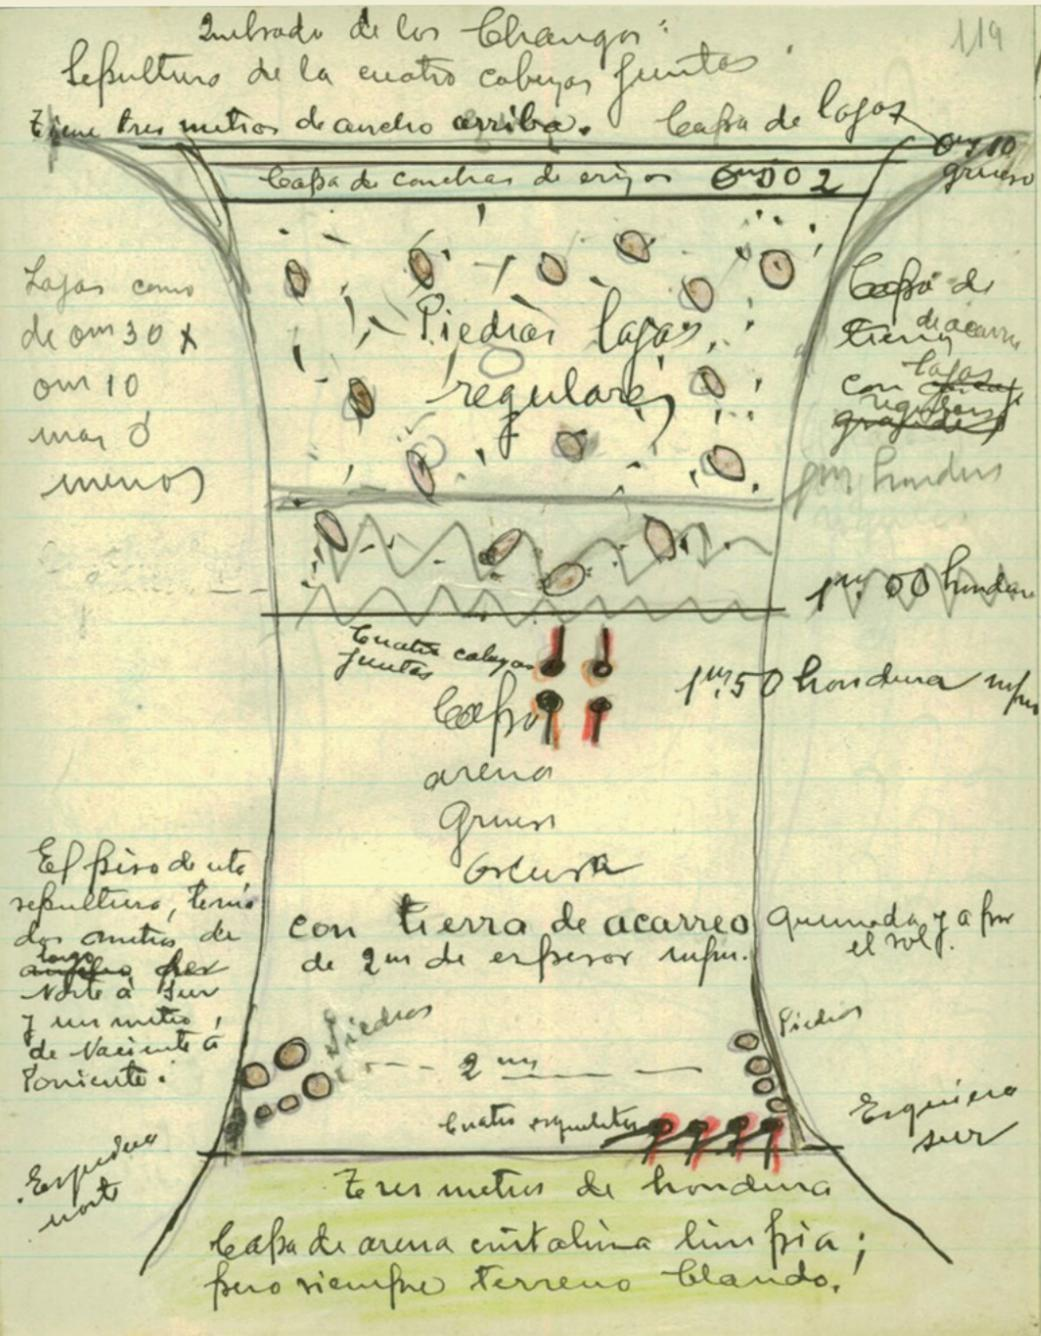 119
Quebrada de los Changos:
Sepultura de la cuatro cabezas juntas
Tiene tres metros de ancho arriba.
Capa de lajas
0m10
grueso
Capa de conchas de erizos 0m002
Lajas como
de 0m30 x
0m10
mas ó
menos
Piedras lajas
regulares
Capa de
tierra de acarreo
con lajas
regulares
grandes
hondura
1m.00 hondura
Cuatro cabezas
juntas
1m.50 hondura
Capa
arena
Gruesa
oscura
con tierra de acarreo quemada y a por
el sol.
de 2m de espesor
El piso de esta
sepultura, tenia
dos metros de
largo
Norte á Sur
y un metro,
de Naciente á
Poniente.
Piedras
Piedras
2 m
Cuatro esqueletos
Esquina
norte
Esquina
sur
Tres metros de hondura
Capa de arena cristalina limpia;
pero siempre terreno blando.